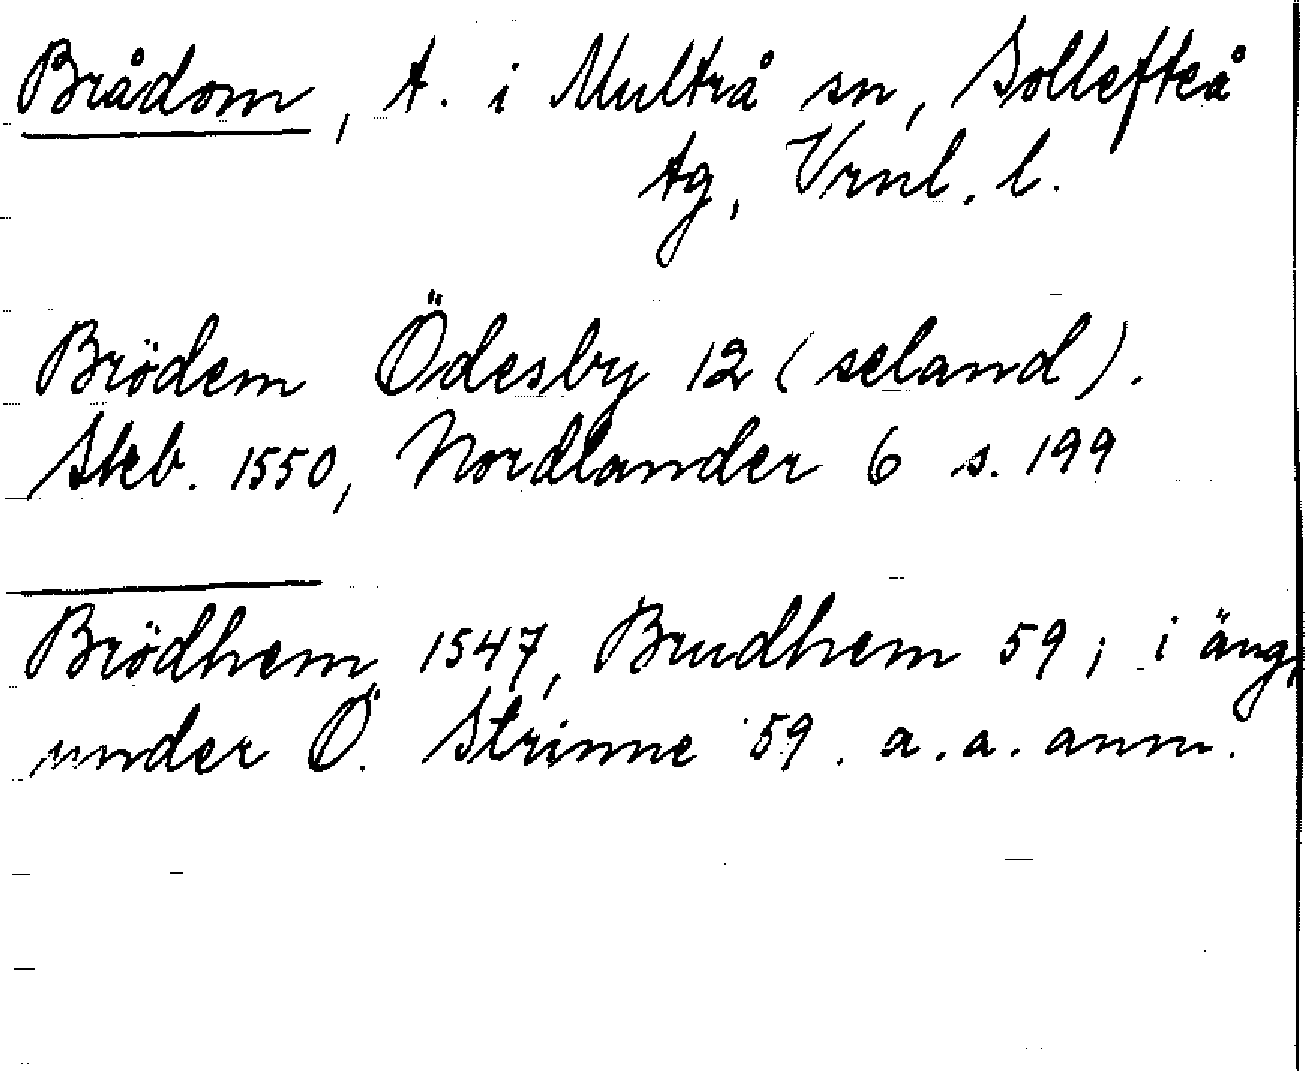 Brådom, t. i Multrå sn, Sollefteå
tg, Vrnl. l.
Brödem Ödesby 12 (seland).
Skb. 1550, Nordlander 6 s. 199
Brödhem 1547, Brudhem 59; i äng,
under Ö. Strinne 59. a.a. anm.